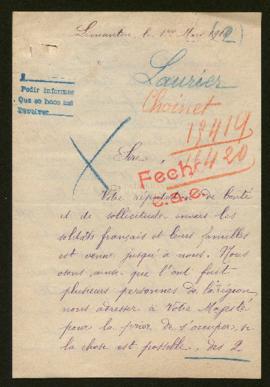 Limanton, le 1er Mars
(2)
1
Pedir informes
Que se hace
Devolver
Laurier
Choinet
13419
15420
Sire,
Fecho
Votre réputation de bonté
et de sollicitude envers les
soldats français et leurs familles
est venue jusqu'à nous. Nous
osons ainsi que l'ont fait
plusieurs personnes de la région
nous adresser à Votre Majesté
pour la prier de s'occuper, si
la chose est possible, des 2